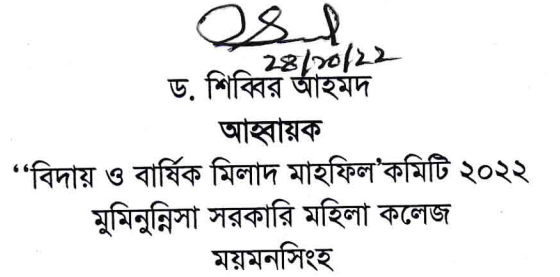 28/10/22
ড. শিব্বির আহমদ
আহ্বায়ক
“বিদায় ও বার্ষিক মিলাদ মাহফিল’কমিটি ২০২২
মুমিনুন্নিসা সরকারি মহিলা কলেজ
ময়মনসিংহ